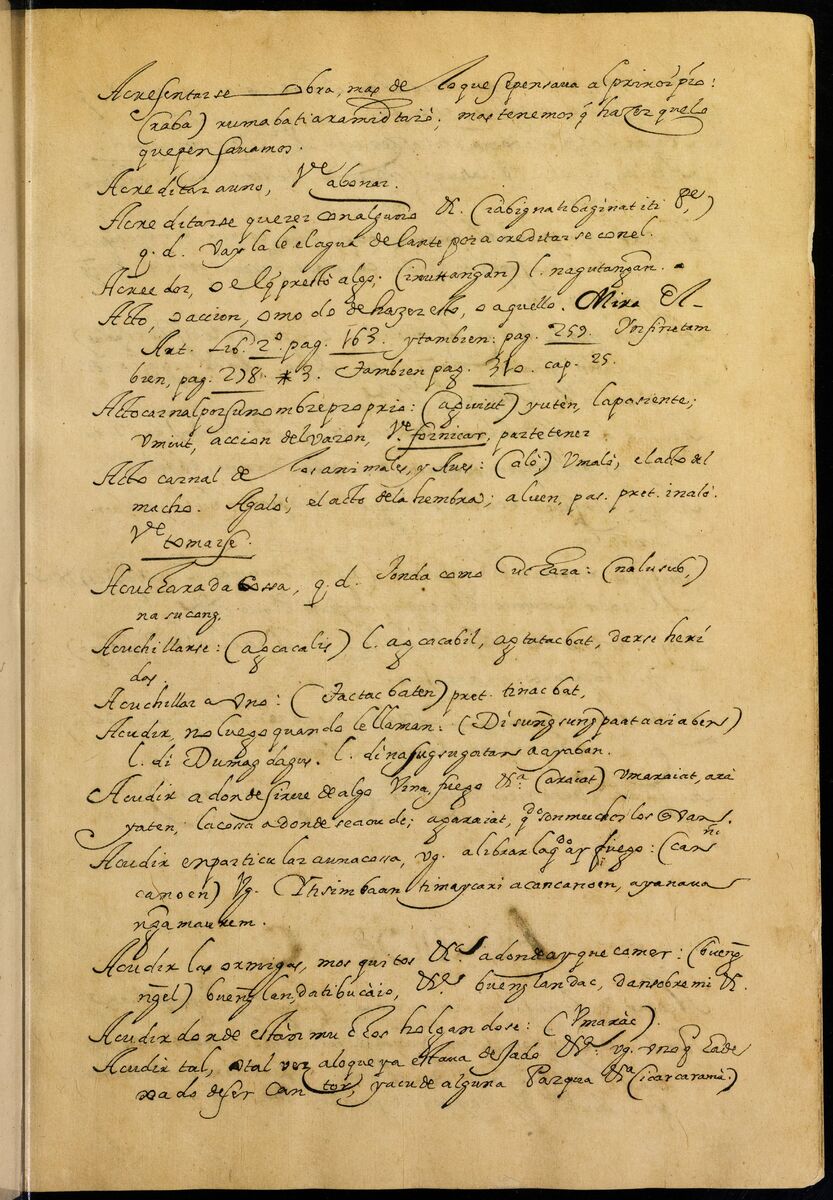 Acresentarse obra, mas de lo que sepensaua al prinçipio:
(raba) rumabatiaramidtarò; mas tenemos q̃ hazer quelo
que pensauamos.
Acreditar auno, Vᵉ abonar.
Acreditarse querer conalguno &. (iabignatibaginat iti &ᵉ,)
q. d. vayla le el agua delante por acreditarse con el.
Acreedor, o el q̃ prestò algo; (inuttangãn) l. nagutangan.
Acto, o accion, o modo de hazer esto, o aquello. Mira El
Art. Lib. 2º. pag. 163. y tambien: pag. 259. Vesirietam
bien, pag. 278. * 3. Tambien pag. 310. cap. 25.
Acto carnal por su nombre proprio: (aguiut) yutèn, la pasiente;
Vmiut, accion del varon, Vᵉ fornicar, partetener
Acto carnal de los animales, y Aues: (alò;) Vmalò, el acto del
macho. Agalò, el acto de la hembra; aluen, pas. pret. inalò.
Vᵉ tomarse.
Acucharada cossa, q, d. Jonda como cuchara: (nalusub,)
nasucong.
Acuchillarse: (agcacalis) l. agcacabil, agtatacbat, darse heri
dos.
Acuchillar a Vno: (Tactacbaten) pret. tinacbat,
Acudir, no luego quando le llaman: (Di sung̃sung̃paat aaiaben)
l. di Dumagdagus. l. di nasugsugatan a ayaban.
Acudir adonde sirue de algo Vina, fuego &ª (araiat) Vmaraiat, ara
yaten, la cossa adonde seacude; agaraiat, qᵈᵒ son muchos los q̃ van.
Acudir enparticular auna cossa, vg. alibrar lo qᵈᵒ ay fuego: (can
canoen) Vg. Ytisimbaan timaycari acancanoen, ayanaua
ng̃amaurem.
Acudir las ormigas, mosquitos &ª adonde ay que comer: (bueng̃
ng̃el) bueng̃lan, dati bucàio, &ª. bueng̃landac, dan sobre mi &.
Acudir donde están muchos holgandose: (Vmaràc).
Acudir tal, o tal vez aloque ya estaua dejado &ª. vg. vno q̃ ha de
xado deser Cantor, y acude alguna Pasqua &ª (icarcarama.)